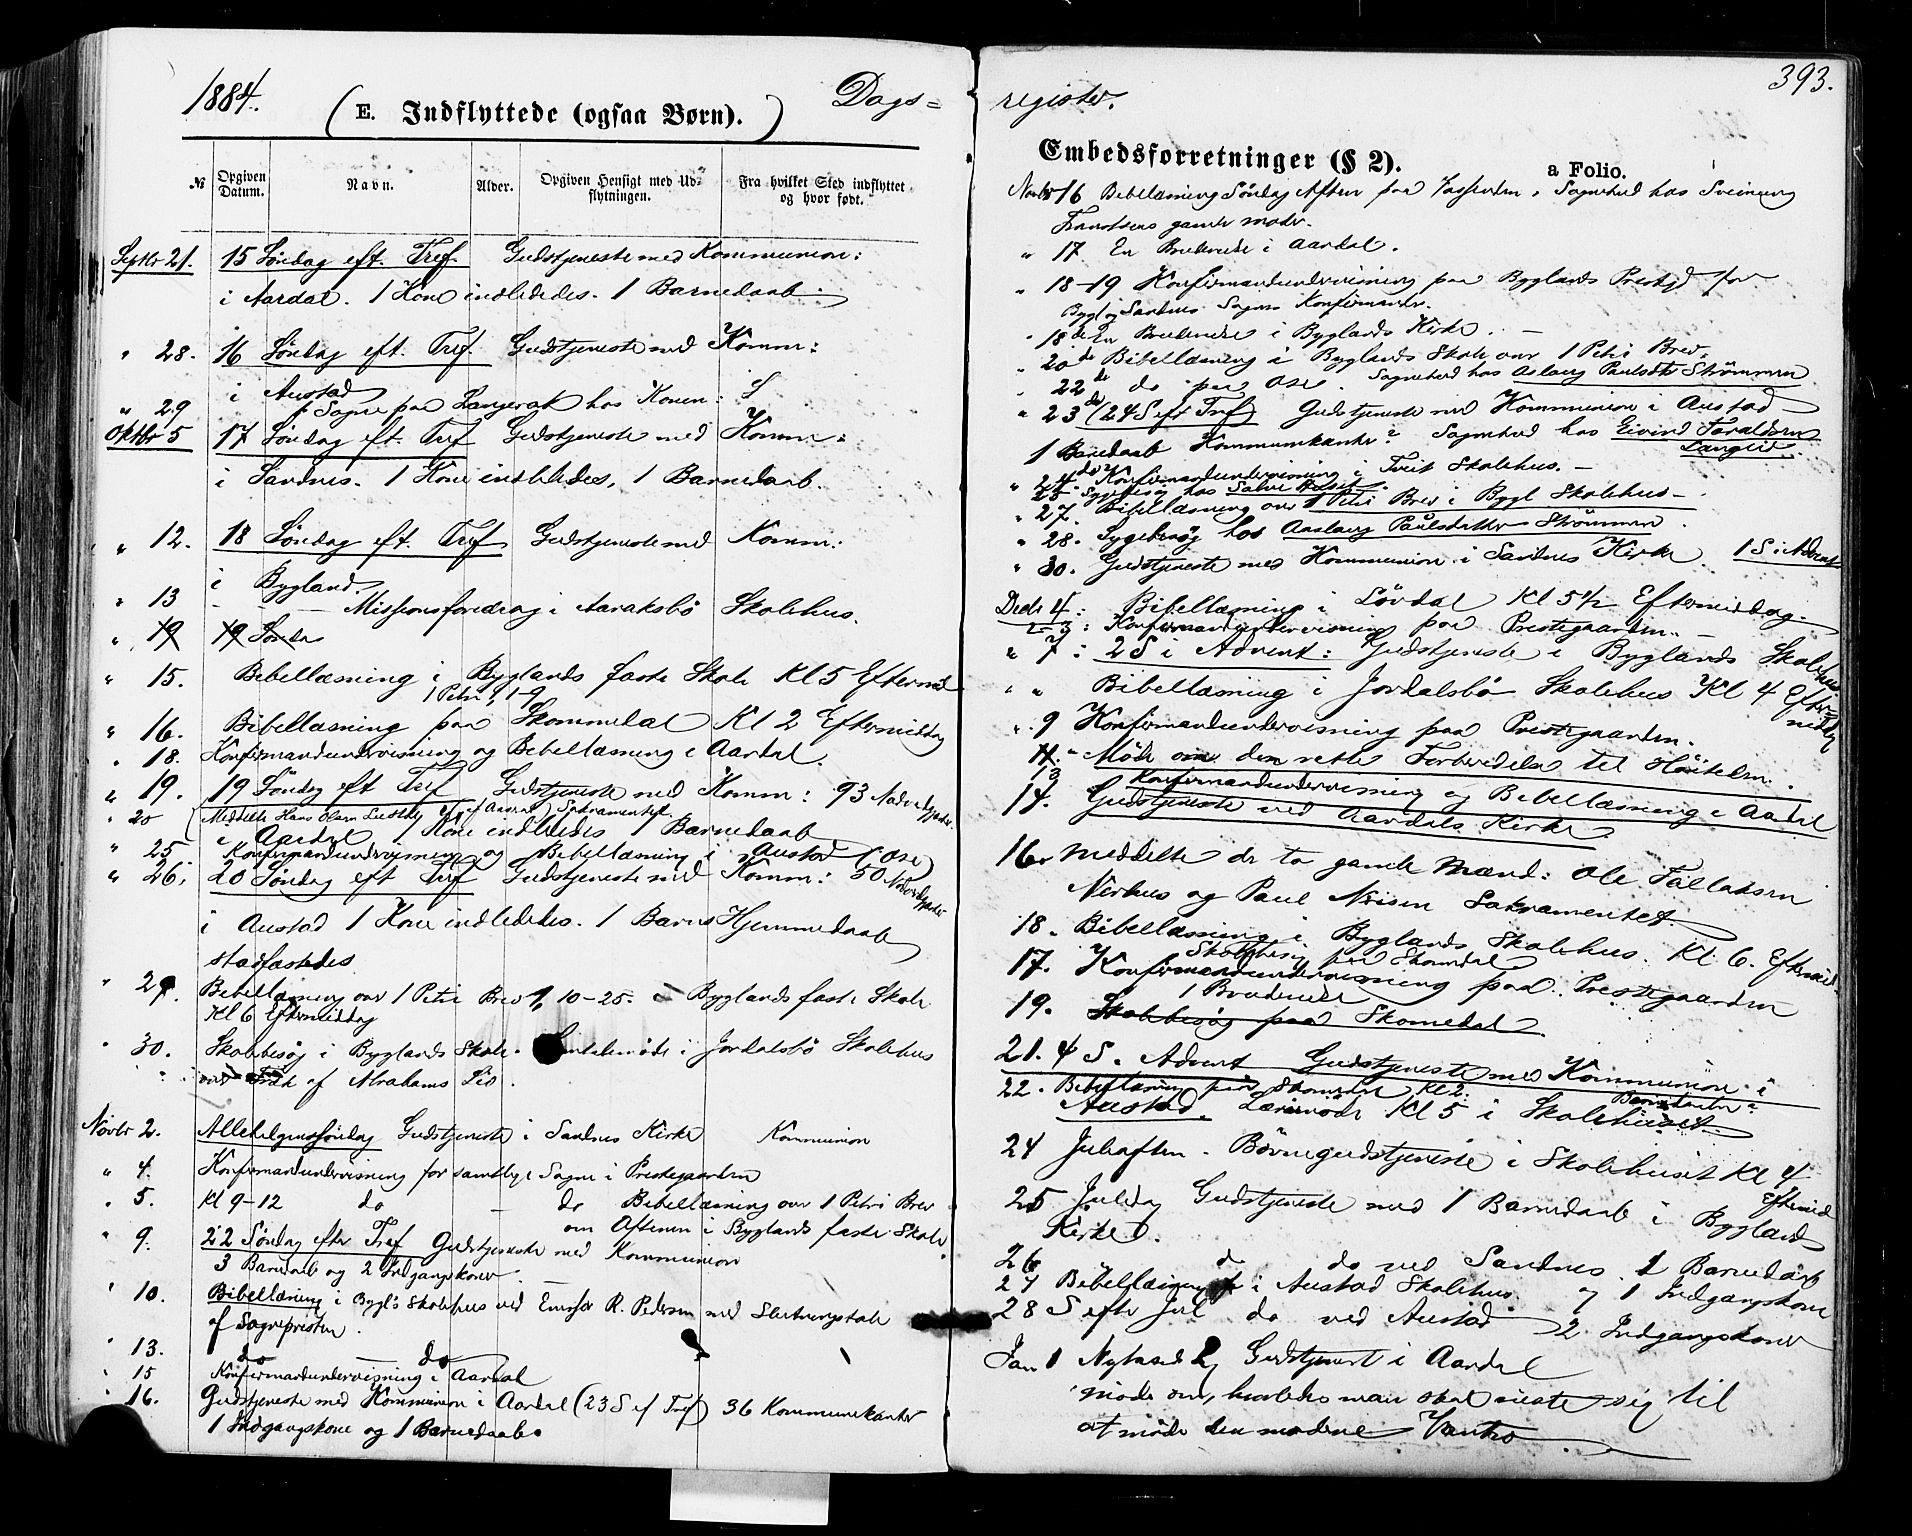 1884. (E. Indflyttede (ogsaa Børn).) Dags=
№ Opgiven Datum. Navn. Alder. Opgiven Hensigt med Udflytningen. Fra hvilket Sted indflyttet og hvor født.
Septbr 21. 15 Søndag eft. Tref. Gudstjeneste med Kommunion:
i Aardal. 1 Kone indlededes. 1 Barnedaab.
" 28. 16 Søndag eft. Tref. Gudstjeneste med Komm:
i Austad
" 29 Sogne paa Langerak hos Konen
Oktbr 5 17 Søndag eft. Tref Gudstjeneste med Komm:
i Sandnes. 1 Kone indlededes, 1 Barnedaab.
" 12. 18 Søndag eft. Tref Gudstjeneste med Komm:
i Bygland.
" 13 - - Missionsforedrag i Aaraksbø Skolehus.
" 19 19 Sønda
" 15. Bibellæsning i Byglands faste Skole Kl 5 Eftermid
1 Petri 1, 1-9
" 16. Bibellæsning paa Skommedal Kl 2 Eftermiddag
" 18. Konfirmandundervisning og Bibellæsning i Aardal.
" 19. 19 Søndag eft Tref Gudstjeneste med Komm: 93 Nadvergjæster
" 20 (Meddelte Hans Olsen Sakramentet.
i Aardal 1 Kone indlededes 1 Barnedaab
" 25. Konfirmandundervisning og Bibellæsning i Austad (Ose)
" 26. 20 Søndag eft Tref Gudstjeneste med Komm: 50 Nadvergjæster
i Austad 1 Kone indlededes. 1 Barns Hjemmedaab
stadfæstedes
" 29. Bibellæsning over 1 Petri Brev 1, 10-25. i Byglands faste Skole
Kl 6 Eftermiddag
" 30. Skolebesøg i Byglands Skole. Samtalemøde i Jordalsbø Skolehus
over af Abrahams Liv.
Novbr 2. Allehelgenssøndag Gudstjeneste i Sandnes Kirke Kommunion
" 4. Konfirmandundervisning for samtlige Sogne i Prestegaarden
" 5. Kl 9-12 do - do Bibellæsning over 1 Petri Brev
om Aftenen i Byglands faste Skole.
" 9. 22 Søndag efter Tref Gudstjeneste med Kommunion
3 Barnedaab og 2 Indgangskoner.
" 10. Bibellæsning i Bygl's Skolehus ved R. Pedersen med Slutningstale
af Sognepresten.
" 13. do - do
" 15 Konfirmandundervisning i Aardal
" 16. Gudstjeneste med Kommunion i Aardal (23 S ef Tref) 36 Kommunikanter
1 Indgangskone og 1 Barnedaab.
393.
register.
Embedsforretninger (§ 2). a Folio.
Novbr 16 Bibellæsning Søndag Aften paa Sognebud hos Sveinung
gamle moder.
" 17 En Brudevielse i Aardal.
" 18-19 Konfirmandundervisning paa Byglands Prestgd for
Bygl og Sandnes Sogns Konfirmander.
" 18de En Brudevielse i Byglands Kirke. -
" 20de Bibellæsning i Byglands Skole over 1 Petri Brev.
" 22de do paa Ose. Sognebud hos Aslaug Paulsdtr Strømmen
" 23de (24 S eft Tref) Gudstjeneste med Kommunion i Austad
1 Barnedaab Kommunikanter ? Sognebud hos Eivind Taraldsen
Langeid.
" 24de Konfirmandundervisning i Tveit Skolehus. -
" 25 Sygebesøg hos Salve
" 27. Bibellæsning over 1 Petri Brev i Bygl Skolehus -
" 28. Sygebesøg hos Aaslaug Paulsdatter Strømmen.
" 30. Gudstjeneste med Kommunion i Sandnes Kirke. 1 S i Advent
Decbr 4: Bibellæsning i Løvdal Kl 5½ Eftermiddag.
2-3: Konfirmandundervisning paa Prestegaarden. -
" 7: 2 S i Advent: Gudstjeneste i Byglands Skolehus.
" " Bibellæsning i Jordalsbø Skolehus Kl 4 Eftermiddag
" 9 Konfirmandundervisning paa Prestegaarden.
11. - Møde om den rette Forberedelse til Høitiden.
13 Konfirmandundervisning og Bibellæsning i Aardal
14. Gudstjeneste ved Aardals Kirke
16. meddelte de to gamle Mænd: Ole Tallaksen
Nerhus og Paul Nrisen Sakramentet.
18. Bibellæsning i Byglands Skolehus. Kl. 6. Eftermid
Skolebesøg paa Skomedal
17. Konfirmandundervisning paa Prestegaarden
1 Brudevielse
19. Skolebesøg paa Skomedal
21. 4 S. Advent Gudstjeneste med Kommunion i
22. Bibellæsning paa Skomedal Kl 2.
Austad. Læsemøde Kl 5 i Skolehuset
Barnedaab ?
24 Juleaften. Børnegudstjeneste i Skolehuset Kl 4
Eftermid
25 Juledag Gudstjeneste med 1 Barnedaab i Bygland
Kirke.
26 do do ved Sandnes. 1 Barnedaab
og 1 Indgangskone
27 Bibellæsning i Austad Skolehus.
28 S efter Jul do ved Austad 2 Indgangskoner
Jan 1 Nytaarsdag Gudstjenest i Aardal
møde om, hvorledes man skal ruste sig til
at møde den moderne Vantro